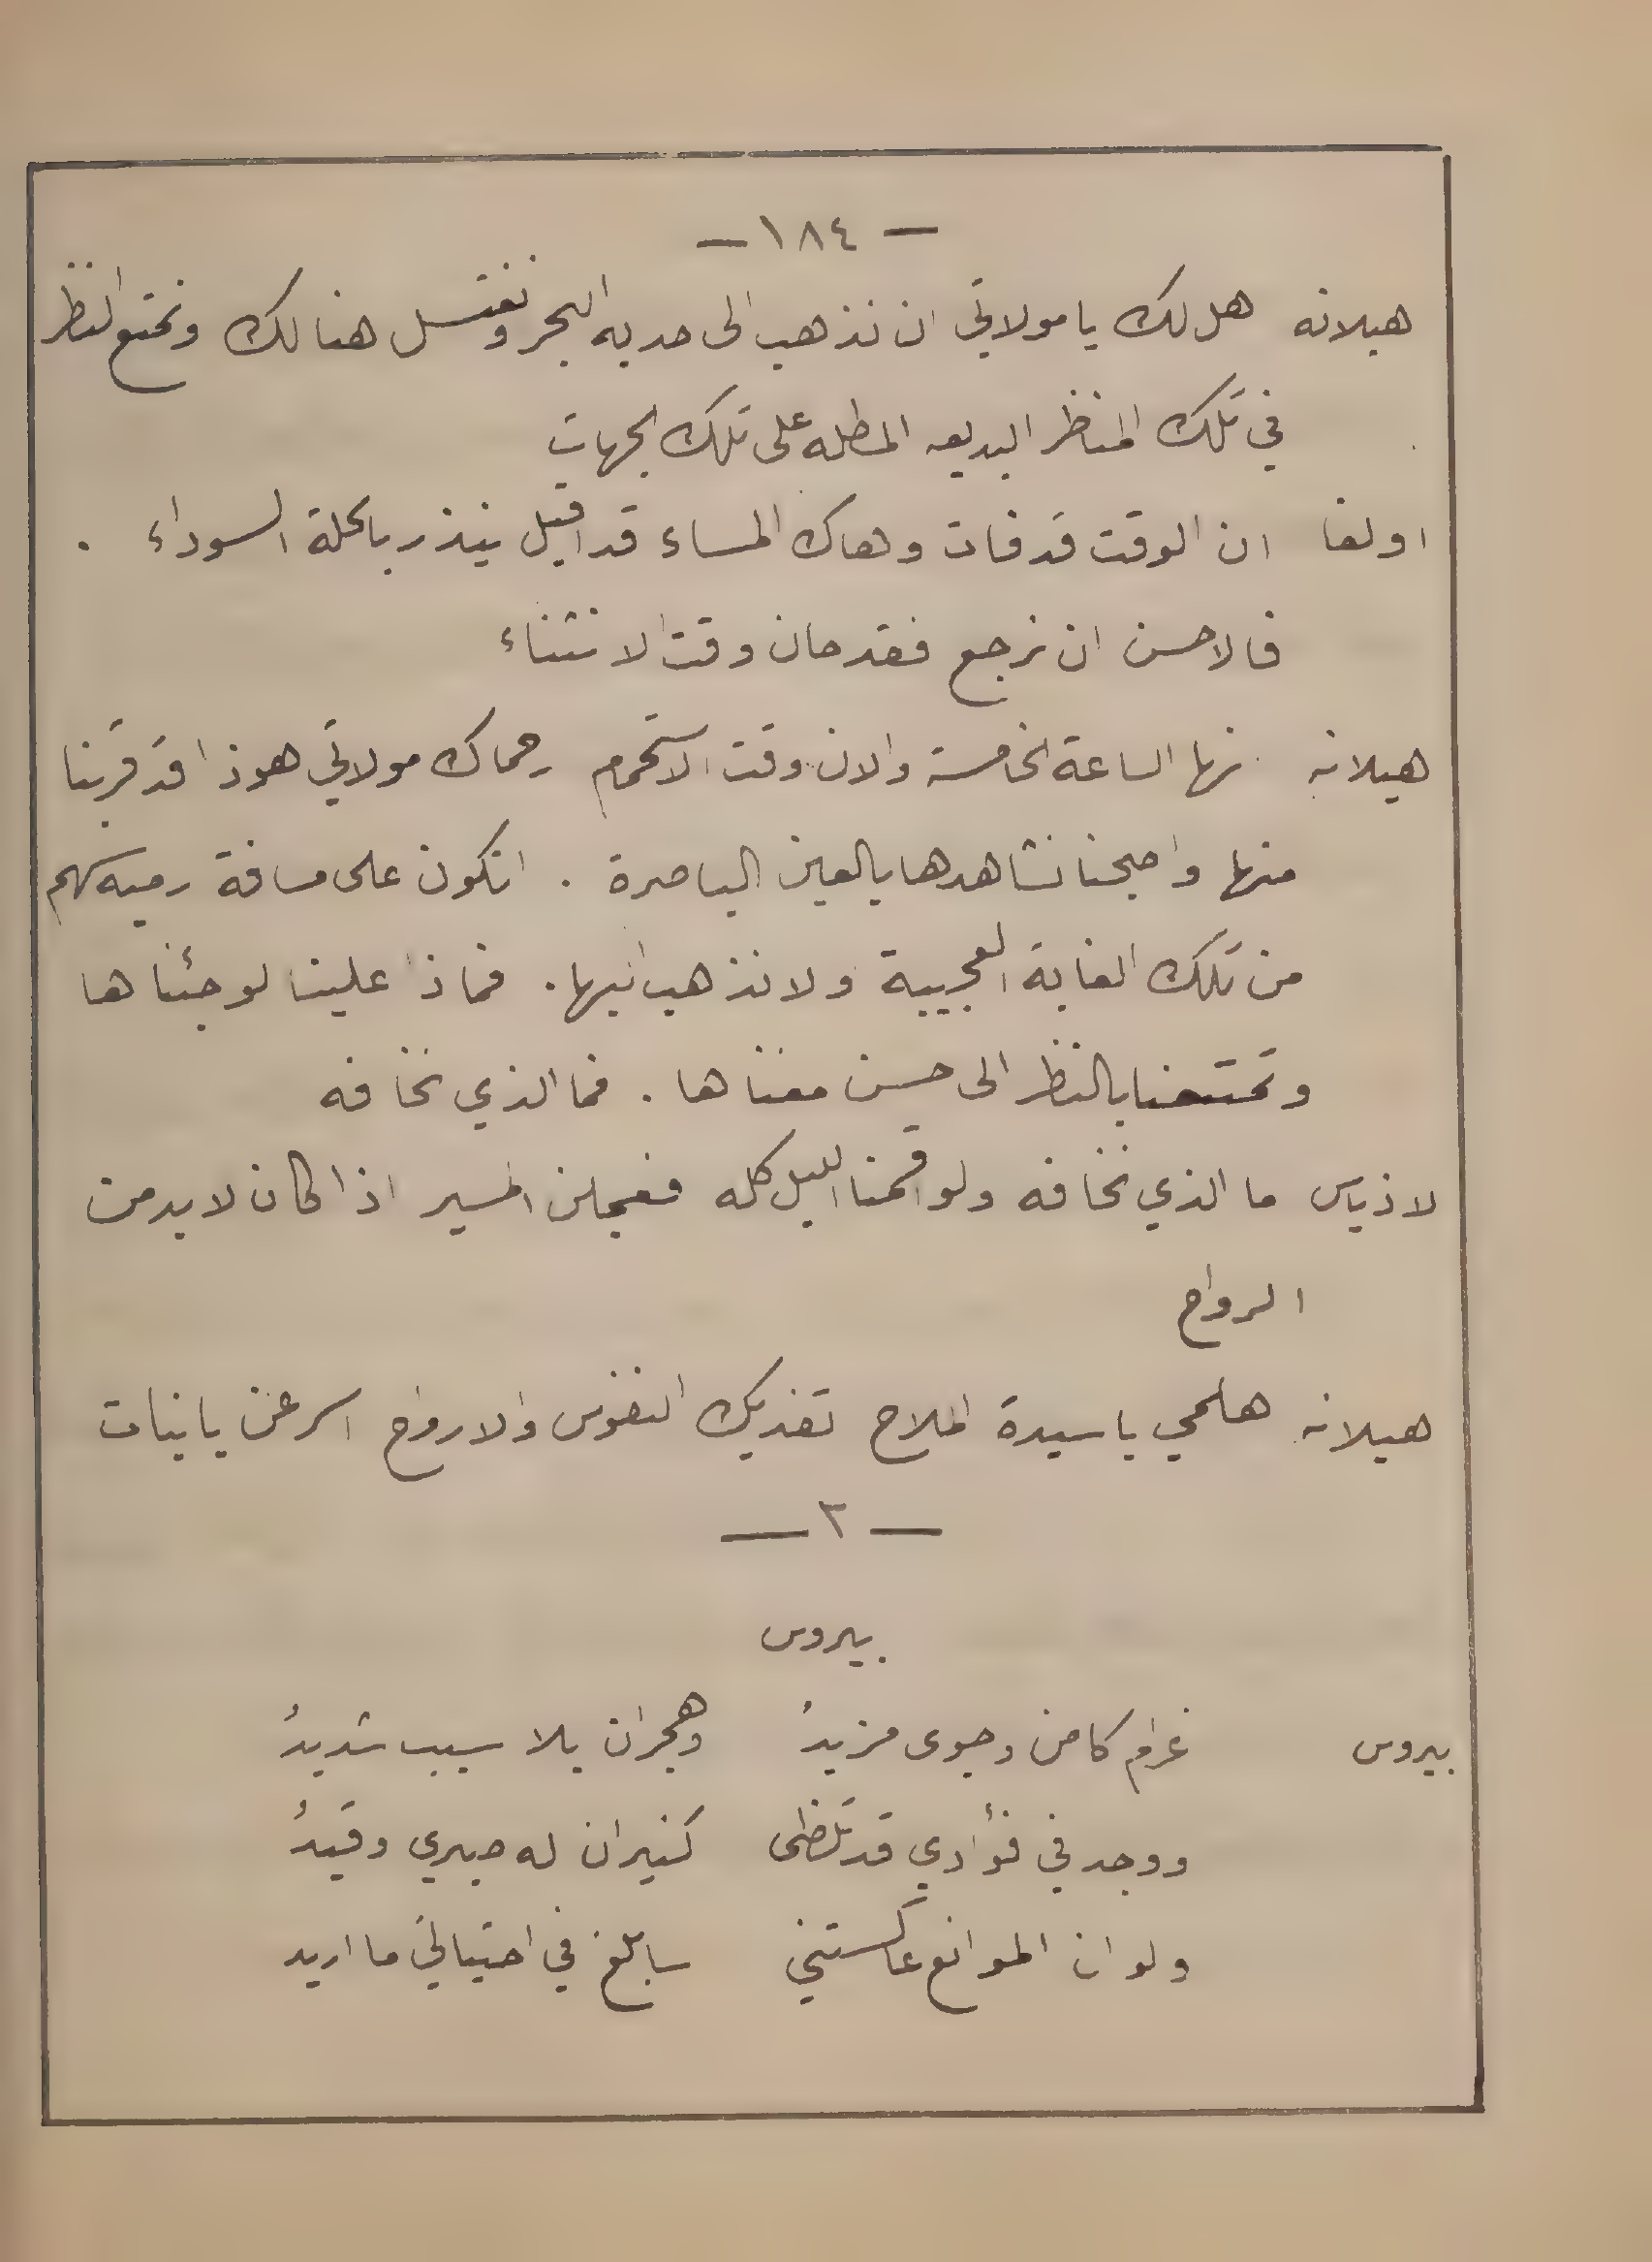 — ١٨٤ —
هيلانه هل لك يا مولاتي ان نذهب الى حدبه البحر ونغتسل هنالك ونمتع النظر
في تلك المناظر البديعه المطله على تلك الجهات
اولغا ان الوقت قد فات وهاك المساء قد اقبل ينذر بالحلة السوداء .
فالاحسن ان نرجع فقد حان وقت الانثناء
هيلانه نها الساعة الخامسة والان وقت الاستحمام رحماك مولاتي هوذا قد قربنا
منها واصبحنا نشاهدها بالعين الباصرة . انكون على مسافة رميه سهم
من تلك الغابة العجيبة ولا نذهب اليها . فماذا علينا لو جئناها
وتمتعنا بالنظر الى حسن مغناها . فما الذي نخافه
لاذياس ما الذي نخافه ولو اقمنا الليل كله فعجلن المسير اذا كان لا بد من
الرواح
هيلانه هلمي يا سيدة الملاح تفديك النفوس والارواح اسرعن يا بنات
— ٢ —
بيروس
بيروس غرام كامن وجوى مزيدُ وهجران بلا سبب شديدُ
ووجد في فؤادي قد تلظى كنيران له صبري وقيدُ
ولو ان الموانع عاكستني سابلغ في احتيالي ما اريد